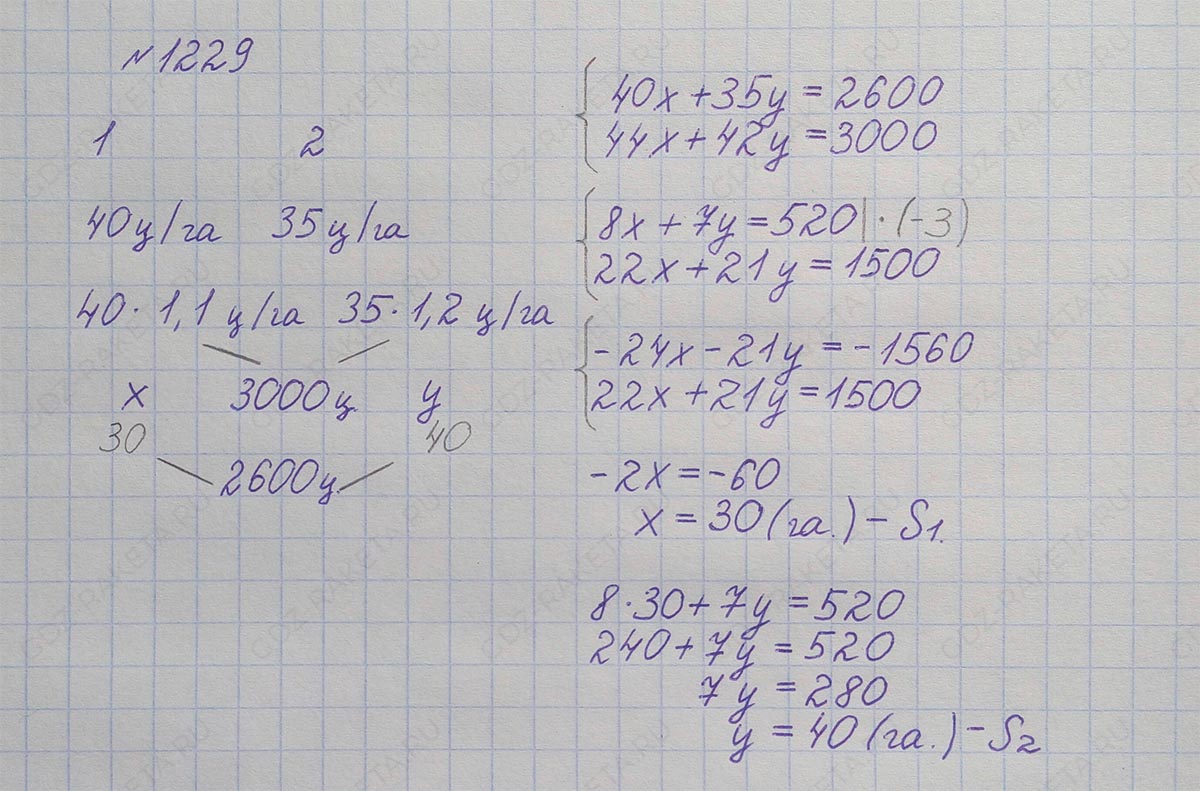 №1229
1 2
40ц/га 35ц/га
40·1,1 ц/га 35·1,2 ц/га
x 3000ц y
30 40
2600ц
40x+35y=2600
44x+42y=3000
8x+7y=520|·(-3)
22x+21y=1500
-24x-21y=-1560
22x+21y=1500
-2x=-60
x=30(га.)-S1.
8·30+7y=520
240+7y=520
7y=280
y=40(га.)-S2
GDZ-RAKETA.RU